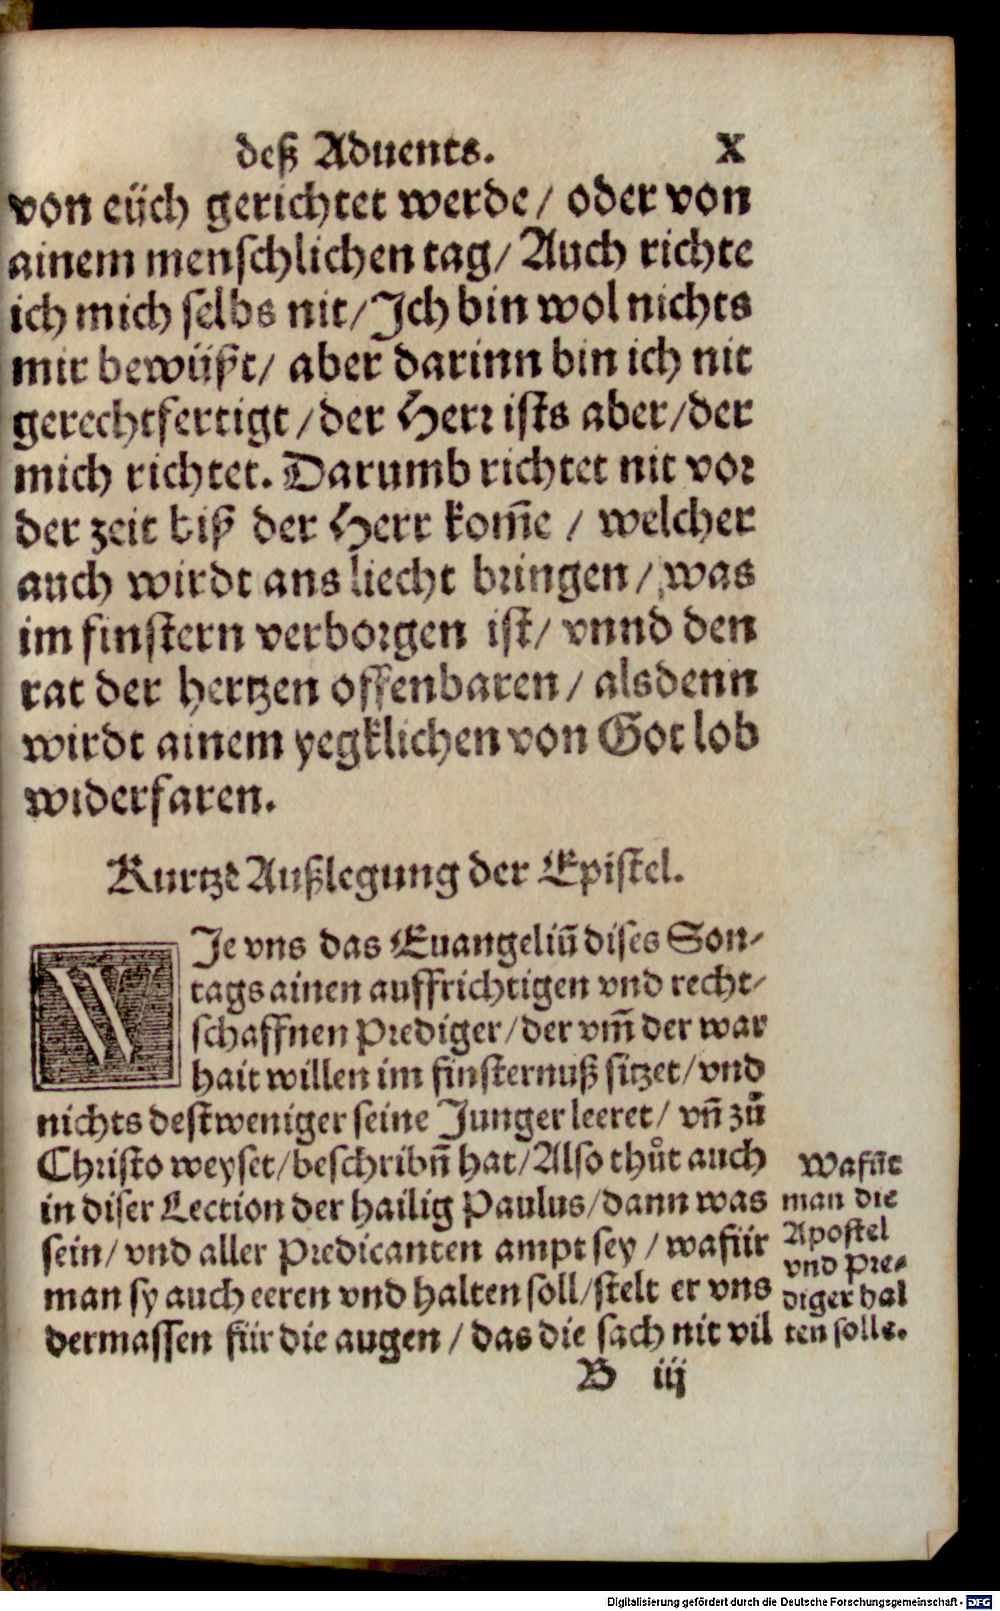 deß Aduents. X
von eüch gerichtet werde/ oder von
ainem menschlichen tag/ Auch richte
ich mich selbs nit/ Ich bin wol nichts
mir bewüßt/ aber darinn bin ich nit
gerechtfertigt/ der Herr ists aber/ der
mich richtet. Darumb richtet nit vor
der zeit biß der Herr kom̃e / welcher
auch wirdt ans liecht bringen/ was
im finstern verborgen ist/ vnnd den
rat der hertzen offenbaren/ alsdenn
wirdt ainem yegklichen von Got lob
widerfaren.
Kurtze Außlegung der Epistel.
WIe vns das Euangeliū dises Son-
tags ainen auffrichtigen vnd recht-
schaffnen Prediger/ der vm̃ der war
hait willen im finsternuß sitzet/ vnd
nichts destweniger seine Junger leeret/ vñ zů
Christo weyset/ beschribñ hat/ Also thůt auch
in diser Lection der hailig Paulus/ dann was
sein/ vnd aller Predicanten ampt sey / wafür
man sy auch eeren vnd halten soll/ stelt er vns
dermassen für die augen / das die sach nit vil
Wafür
man die
Apostel
vnd Pre-
diger hal
ten solle.
B iij
Digitalisierung gefördert durch die Deutsche Forschungsgemeinschaft - DFG